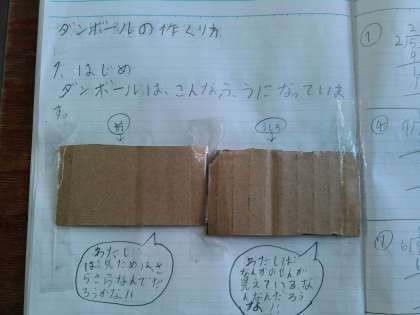 ダンボールの作くり方
1. はじめ
ダンボールは、こんなふうになっていま
す。
前
うしろ
あたしに
は見ためは、さ
らさらなんでだ
ろうかな!!
あたしは
なんかのせんが
見えているな
なんなんだろう
な!!
①
④
⑦